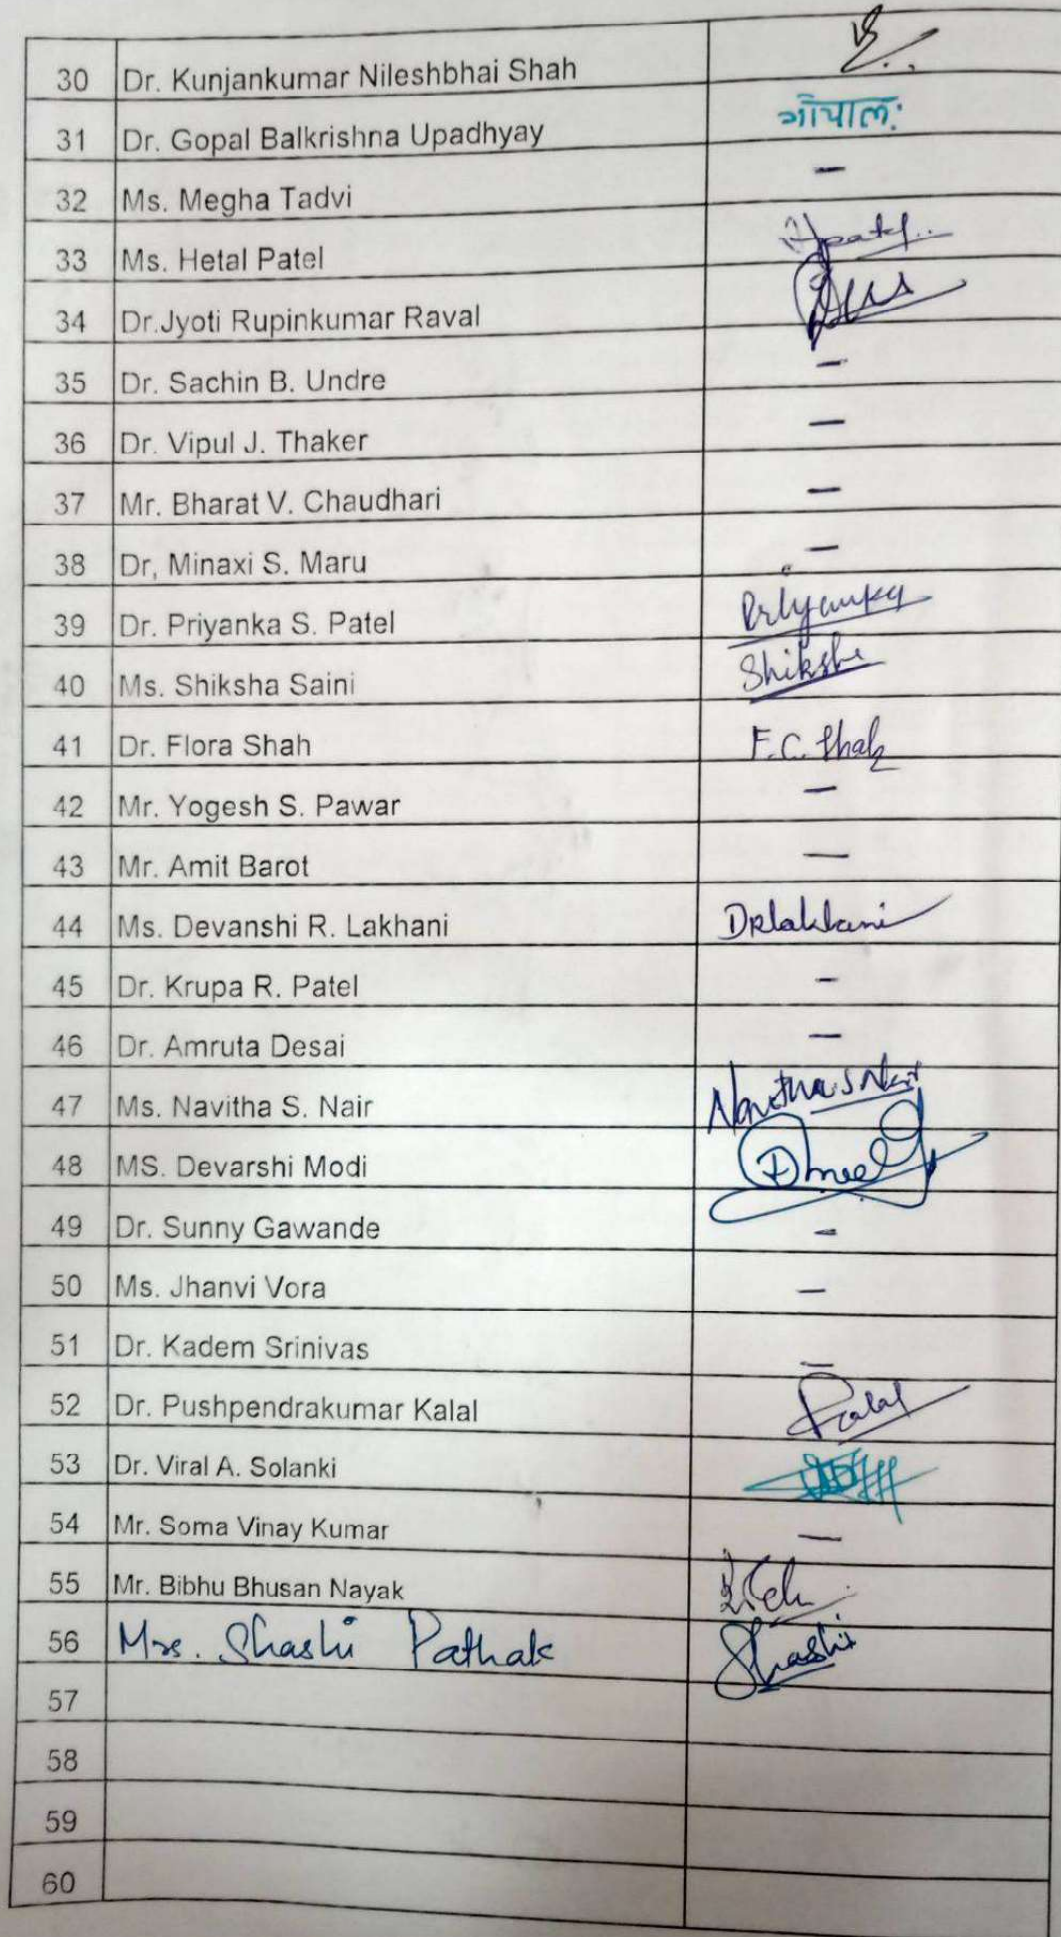 30 Dr. Kunjankumar Nileshbhai Shah
31 Dr. Gopal Balkrishna Upadhyay गोपाल:
32 Ms. Megha Tadvi —
33 Ms. Hetal Patel Hpatel..
34 Dr.Jyoti Rupinkumar Raval
35 Dr. Sachin B. Undre —
36 Dr. Vipul J. Thaker —
37 Mr. Bharat V. Chaudhari —
38 Dr, Minaxi S. Maru —
39 Dr. Priyanka S. Patel Priyanka
40 Ms. Shiksha Saini Shiksha
41 Dr. Flora Shah F.C. Shah
42 Mr. Yogesh S. Pawar —
43 Mr. Amit Barot —
44 Ms. Devanshi R. Lakhani DRLakhani
45 Dr. Krupa R. Patel -
46 Dr. Amruta Desai —
47 Ms. Navitha S. Nair Navitha S Nair
48 MS. Devarshi Modi
49 Dr. Sunny Gawande -
50 Ms. Jhanvi Vora —
51 Dr. Kadem Srinivas —
52 Dr. Pushpendrakumar Kalal Kalal
53 Dr. Viral A. Solanki
54 Mr. Soma Vinay Kumar —
55 Mr. Bibhu Bhusan Nayak
56 Mrs. Shashi Pathak Shashi
57
58
59
60